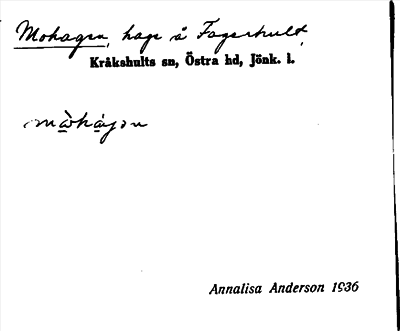 Mohagen, hage å Fagerhult,
Kråkshults sn, Östra hd, Jönk. l.
Annalisa Anderson 1936